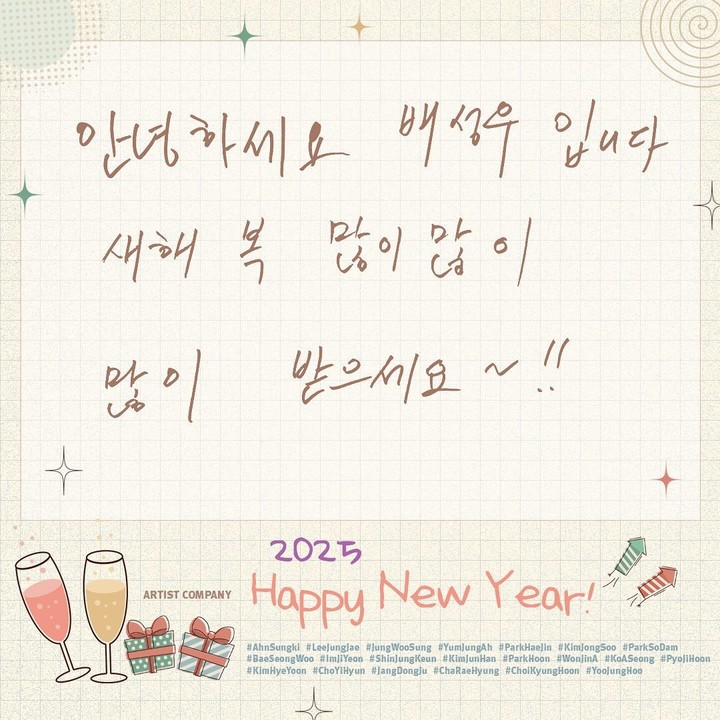 안녕하세요 배성우 입니다
새해 복 많이 많이
많이 받으세요 ~!!
2025
ARTIST COMPANY
Happy New Year!
#AhnSungki #LeeJungJae #JungWooSung #YumJungAh #ParkHaeJin #KimJongSoo #ParkSoDam
#BaeSeongWoo #ImJiYeon #ShinJungKeun #KimJunHan #ParkHoon #WonJinA #KoASeong #PyoJiHoon
#KimHyeYoon #ChoYiHyun #JangDongJu #ChaRaeHyung #ChoiKyungHoon #YooJungHoo